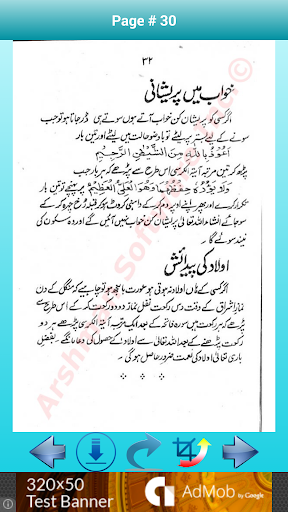 Page # 30
۳۲
خواب میں پریشانی
اگر کسی کو پریشان کن خواب آتے ہوں سوتے ہی ڈر جاتا ہو تو جب
سونے کے لیے بستر پر لیٹے تو باوضو حالت میں لیٹے اور تین بار
اَعُوْذُ بِاللّٰہِ مِنَ الشَّیْطٰنِ الرَّجِیْمِ
پڑھ کر تین مرتبہ آیۃ الکرسی اس طرح سے پڑھے کہ ہر بار جب
وَلَا یَؤُدُہٗ حِفْظُہُمَا وَھُوَ الْعَلِیُّ الْعَظِیْمُ پر پہنچے تو تین بار
تکرار کرے اور اپنے اوپر دم کر کے داہنی کروٹ پر قبلہ رخ چہرہ کر کے
سو جائے انشاء اللہ تعالیٰ پریشان کن خواب نہیں آئیں گے اور وہ سکون کی
نیند سوئے گا۔
اولاد کی پیدائش
اگر کسی کے ہاں اولاد نہ ہوتی ہو صورت بانجھ ہو تو چاہیے کہ منگل کے دن
نماز اشراق کے وقت دس رکعت نفل نماز دو دو رکعت کر کے اس طرح سے
پڑھے کہ ہر رکعت میں سورہ فاتحہ کے بعد ایک مرتبہ آیۃ الکرسی پڑھے ہر دو
رکعت پڑھنے کے بعد اللہ تعالیٰ سے اولاد کے حصول کی دعا مانگے۔ بفضل
باری تعالیٰ اولاد کی نعمت ضرور حاصل ہو گی۔
320x50
Test Banner
AdMob by Google